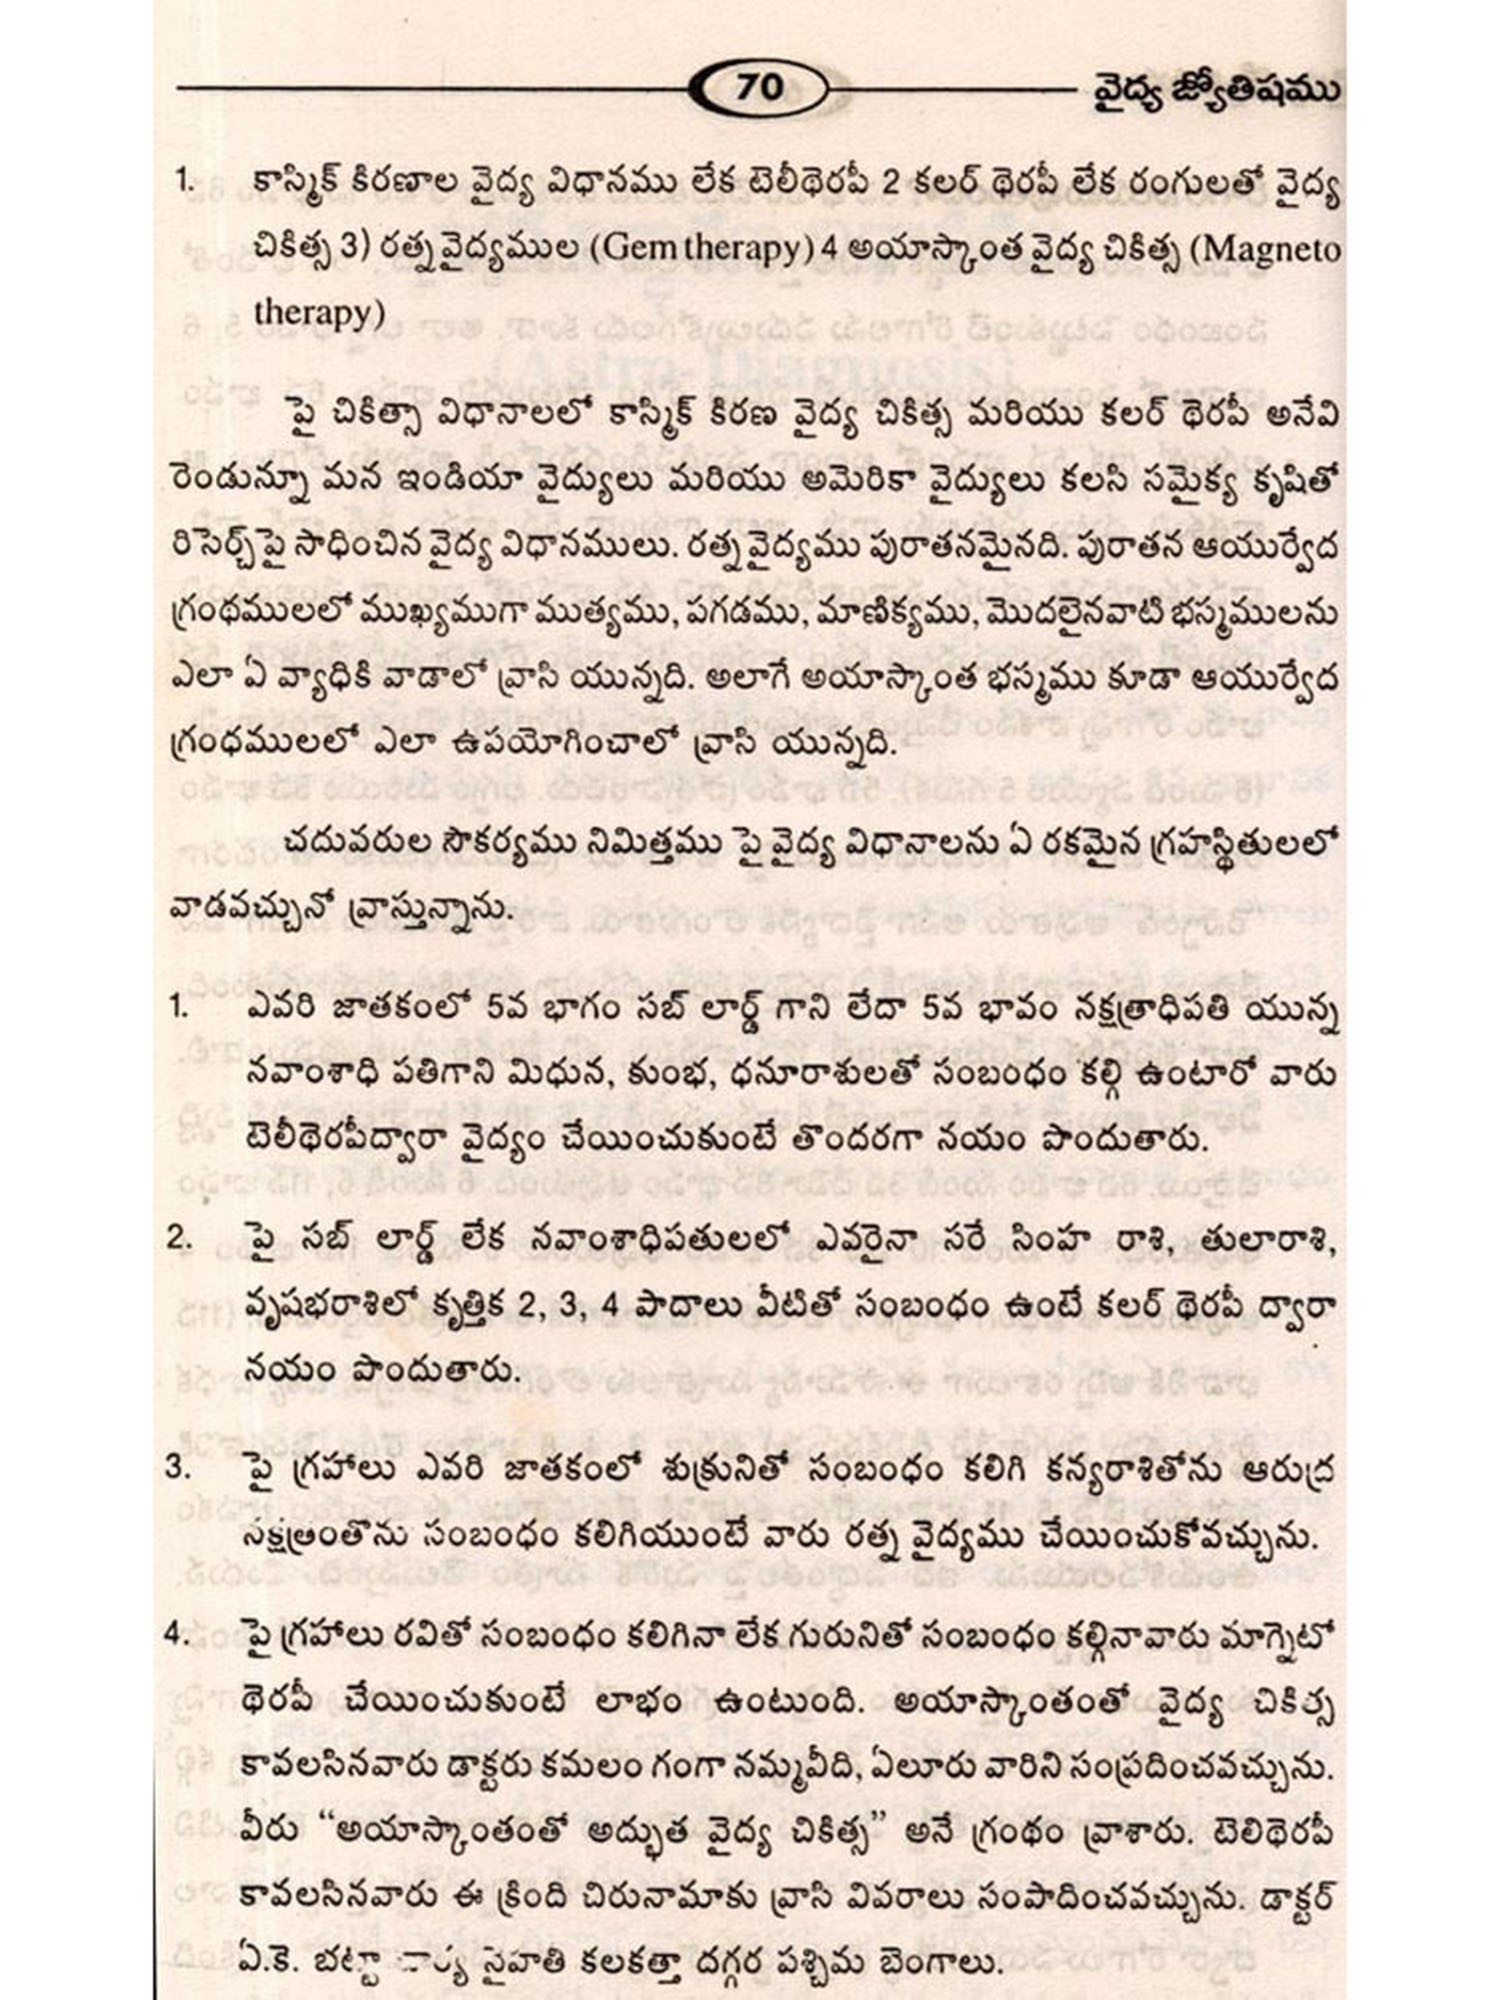 70
వైద్య జ్యోతిషము
1. కాస్మిక్ కిరణాల వైద్య విధానము లేక టెలీథెరపీ 2 కలర్ థెరపీ లేక రంగులతో వైద్య
చికిత్స 3) రత్నవైద్యముల (Gem therapy) 4 అయాస్కాంత వైద్య చికిత్స (Magneto
therapy)
పై చికిత్సా విధానాలలో కాస్మిక్ కిరణ వైద్య చికిత్స మరియు కలర్ థెరపీ అనేవి
రెండున్నూ మన ఇండియా వైద్యులు మరియు అమెరికా వైద్యులు కలసి సమైక్య కృషితో
రిసెర్చ్‌పై సాధించిన వైద్య విధానములు. రత్నవైద్యము పురాతనమైనది. పురాతన ఆయుర్వేద
గ్రంథములలో ముఖ్యముగా ముత్యము, పగడము, మాణిక్యము, మొదలైనవాటి భస్మములను
ఎలా ఏ వ్యాధికి వాడాలో వ్రాసి యున్నది. అలాగే అయాస్కాంత భస్మము కూడా ఆయుర్వేద
గ్రంధములలో ఎలా ఉపయోగించాలో వ్రాసి యున్నది.
చదువరుల సౌకర్యము నిమిత్తము పై వైద్య విధానాలను ఏ రకమైన గ్రహస్థితులలో
వాడవచ్చునో వ్రాస్తున్నాను.
1. ఎవరి జాతకంలో 5వ భాగం సబ్ లార్డ్ గాని లేదా 5వ భావం నక్షత్రాధిపతి యున్న
నవాంశాధి పతిగాని మిధున, కుంభ, ధనూరాశులతో సంబంధం కల్గి ఉంటారో వారు
టెలీథెరపీద్వారా వైద్యం చేయించుకుంటే తొందరగా నయం పొందుతారు.
2. పై సబ్ లార్డ్ లేక నవాంశాధిపతులలో ఎవరైనా సరే సింహ రాశి, తులారాశి,
వృషభరాశిలో కృత్తిక 2, 3, 4 పాదాలు వీటితో సంబంధం ఉంటే కలర్ థెరపీ ద్వారా
నయం పొందుతారు.
3. పై గ్రహాలు ఎవరి జాతకంలో శుక్రునితో సంబంధం కలిగి కన్యరాశితోను ఆరుద్ర
నక్షత్రంతోను సంబంధం కలిగియుంటే వారు రత్న వైద్యము చేయించుకోవచ్చును.
4. పై గ్రహాలు రవితో సంబంధం కలిగినా లేక గురునితో సంబంధం కల్గినావారు మాగ్నెటో
థెరపీ చేయించుకుంటే లాభం ఉంటుంది. అయాస్కాంతంతో వైద్య చికిత్స
కావలసినవారు డాక్టరు కమలం గంగా నమ్మవీది, ఏలూరు వారిని సంప్రదించవచ్చును.
వీరు “అయాస్కాంతంతో అద్భుత వైద్య చికిత్స” అనే గ్రంథం వ్రాశారు. టెలిథెరపీ
కావలసినవారు ఈ క్రింది చిరునామాకు వ్రాసి వివరాలు సంపాదించవచ్చును. డాక్టర్
ఏ.కె. నైహతి కలకత్తా దగ్గర పశ్చిమ బెంగాలు.